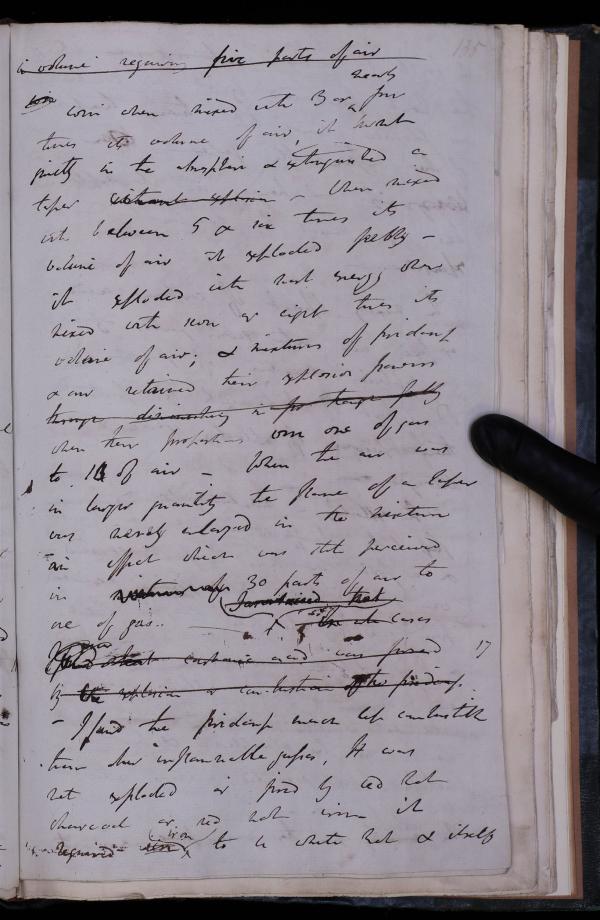 135
in volume requiring five parts of air
nearly
when mixed with 3 or four
times its volume of air, it burnt
quietly in the atmosphere & extinguished a
taper without explosion – When mixed
with between 5 & six times its
volume of air it exploded feebly –
it exploded with most energy when
mixed with seven or eight times its
volume of air; & mixtures of firedamp
& air retained their explosive powers
though
when their proportions were one of gas
to 14 of air – When the air was
in larger quantity the flame of a taper
was merely enlarged in the mixture
an effect which was still perceived
in 30 parts of air to
one of gas..
cases
carbonic acid was formed 17
by the explosion or combustion of the firedamp.
– I found the firedamp much less combustible
than other inflammable gasses, It was
not exploded or fired by red hot
charcoal or red hot iron it
required iron to be white hot & itself